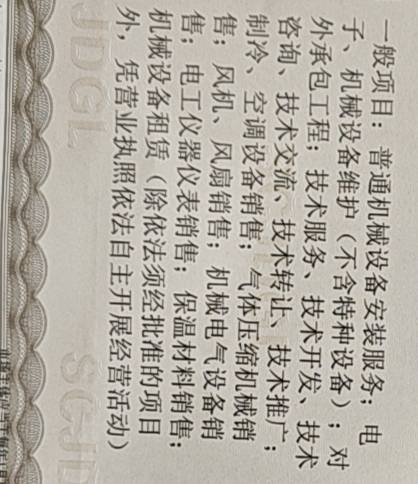 一般项目：普通机械设备安装服务；电
子、机械设备维护（不含特种设备）；对
外承包工程；技术服务、技术开发、技术
咨询、技术交流、技术转让、技术推广；
制冷、空调设备销售；气体压缩机械销
售；风机、风扇销售；机械电气设备销
售；电工仪器仪表销售；保温材料销售；
机械设备租赁（除依法须经批准的项目
外，凭营业执照依法自主开展经营活动）
JDGL
SCJD